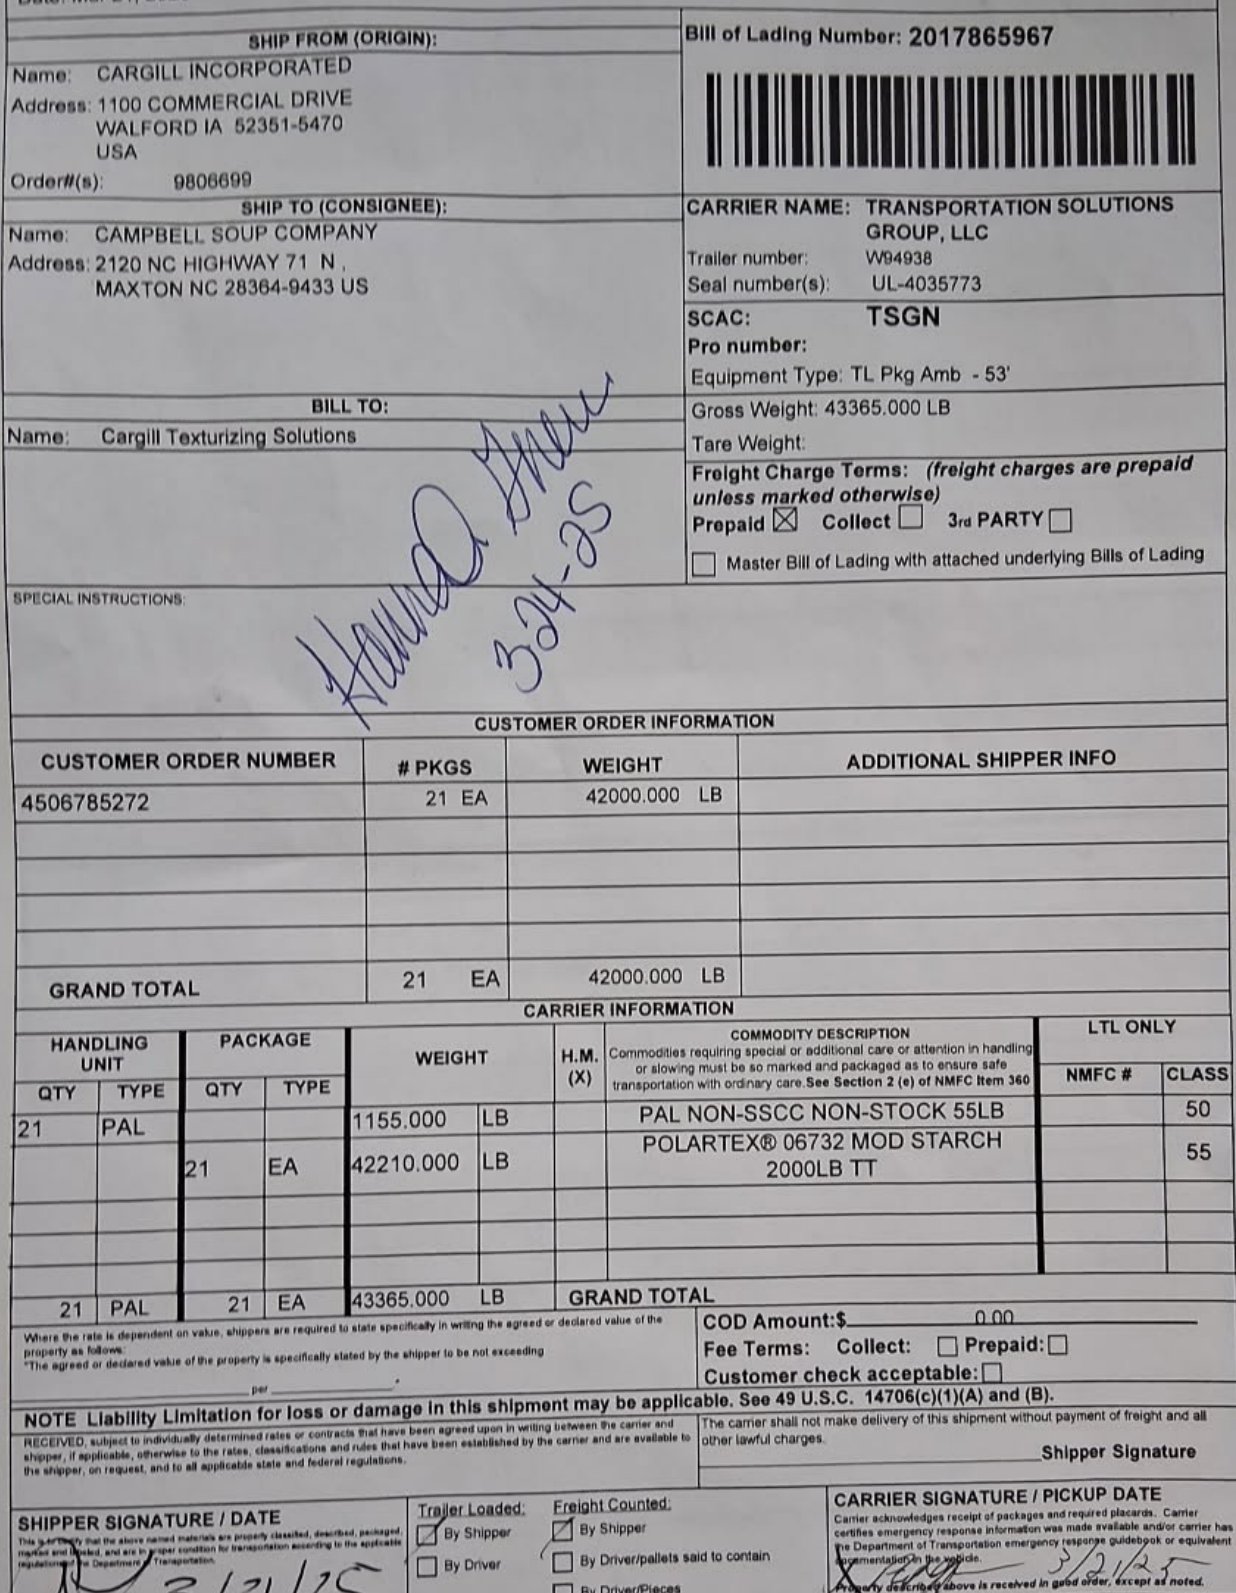 SHIP FROM (ORIGIN):
Name: CARGILL INCORPORATED
Address: 1100 COMMERCIAL DRIVE
WALFORD IA 52351-5470
USA
Order#(s): 9806699
Bill of Lading Number: 2017865967
SHIP TO (CONSIGNEE):
Name: CAMPBELL SOUP COMPANY
Address: 2120 NC HIGHWAY 71 N ,
MAXTON NC 28364-9433 US
CARRIER NAME: TRANSPORTATION SOLUTIONS
GROUP, LLC
Trailer number: W94938
Seal number(s): UL-4035773
SCAC: TSGN
Pro number:
Equipment Type: TL Pkg Amb - 53'
BILL TO:
Name: Cargill Texturizing Solutions
Gross Weight: 43365.000 LB
Tare Weight:
Freight Charge Terms: (freight charges are prepaid
unless marked otherwise)
Prepaid ☒ Collect ☐ 3rd PARTY ☐
☐ Master Bill of Lading with attached underlying Bills of Lading
SPECIAL INSTRUCTIONS:
3-24-25
CUSTOMER ORDER INFORMATION
CUSTOMER ORDER NUMBER # PKGS WEIGHT ADDITIONAL SHIPPER INFO
4506785272 21 EA 42000.000 LB
GRAND TOTAL 21 EA 42000.000 LB
CARRIER INFORMATION
HANDLING UNIT PACKAGE WEIGHT H.M. (X) COMMODITY DESCRIPTION LTL ONLY
Commodities requiring special or additional care or attention in handling
or stowing must be so marked and packaged as to ensure safe
transportation with ordinary care. See Section 2 (e) of NMFC Item 360
QTY TYPE QTY TYPE NMFC # CLASS
21 PAL 1155.000 LB PAL NON-SSCC NON-STOCK 55LB 50
21 EA 42210.000 LB POLARTEX® 06732 MOD STARCH 55
2000LB TT
21 PAL 21 EA 43365.000 LB GRAND TOTAL
Where the rate is dependent on value, shippers are required to state specifically in writing the agreed or declared value of the
property as follows:
"The agreed or declared value of the property is specifically stated by the shipper to be not exceeding
per ."
COD Amount:$ 0.00
Fee Terms: Collect: ☐ Prepaid: ☐
Customer check acceptable: ☐
NOTE Liability Limitation for loss or damage in this shipment may be applicable. See 49 U.S.C. 14706(c)(1)(A) and (B).
RECEIVED, subject to individually determined rates or contracts that have been agreed upon in writing between the carrier and
shipper, if applicable, otherwise to the rates, classifications and rules that have been established by the carrier and are available to
the shipper, on request, and to all applicable state and federal regulations.
The carrier shall not make delivery of this shipment without payment of freight and all
other lawful charges.
Shipper Signature
SHIPPER SIGNATURE / DATE
This is to certify that the above named materials are properly classified, described, packaged,
marked and labeled, and are in proper condition for transportation according to the applicable
regulations of the Department of Transportation.
3/21/25
Trailer Loaded:
☑ By Shipper
☐ By Driver
Freight Counted:
☑ By Shipper
☐ By Driver/pallets said to contain
☐ By Driver/Pieces
CARRIER SIGNATURE / PICKUP DATE
Carrier acknowledges receipt of packages and required placards. Carrier
certifies emergency response information was made available and/or carrier has
the Department of Transportation emergency response guidebook or equivalent
documentation in the vehicle.
X 3/21/25
Property described above is received in good order, except as noted.